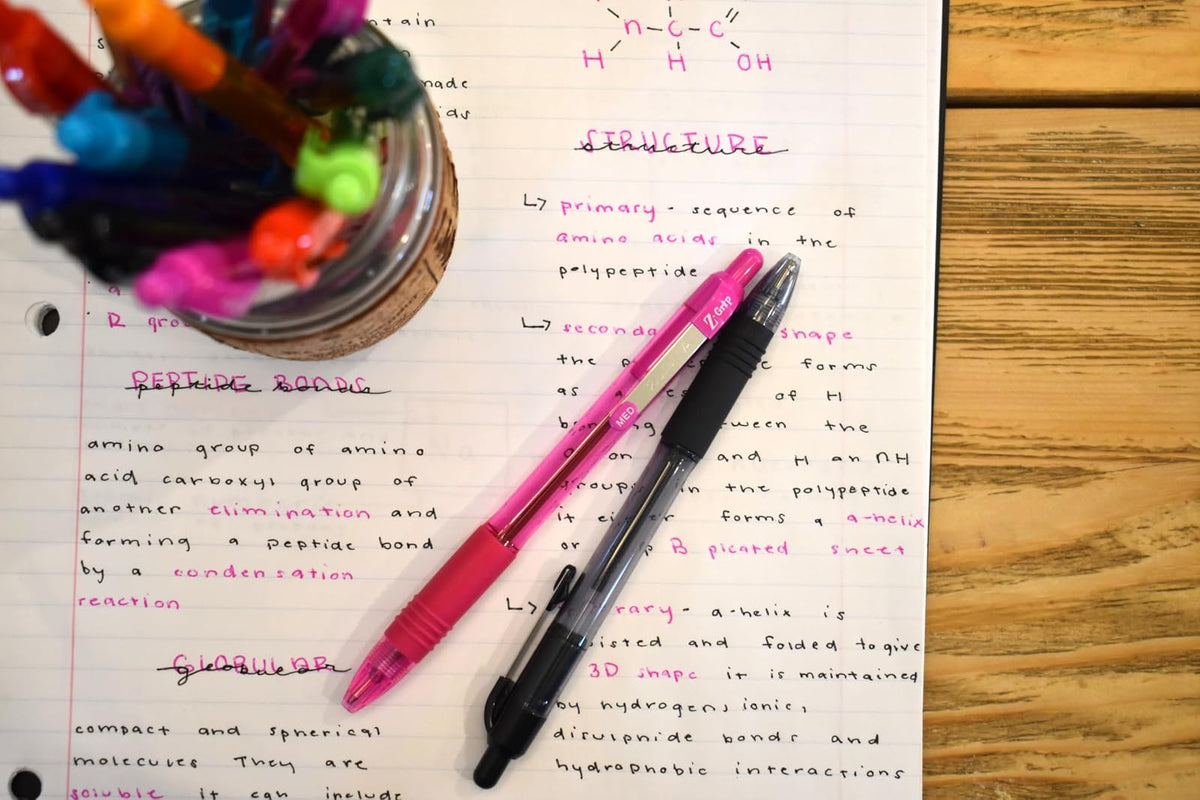 ntain
made
ids
a
R gro
PEPTIDE BONDS
peptide bonds
amino group of amino
acid carboxyl group of
another elimination and
forming a peptide bond
by a condensation
reaction
GLOBULAR
globular
compact and spherical
molecules They are
soluble it can include
n-C-C
H H OH
STRUCTURE
structure
↳ primary - sequence of
amino acids in the
polypeptide
↳ seconda shape
the p forms
as a of H
between the
on and H an nH
groups in the polypeptide
it either forms a a-helix
or B pleated sheet
↳ rary - a-helix is
isted and folded to give
3D shape it is maintained
by hydrogen, ionic,
disulphide bonds and
hydrophobic interactions
Z-Grip
MED